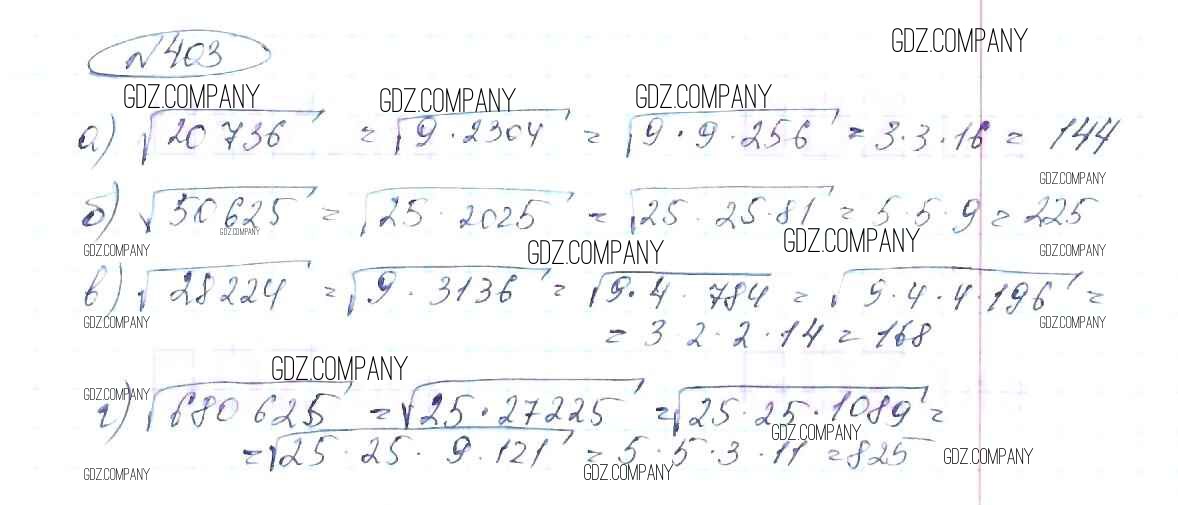 № 403
GDZ.COMPANY
GDZ.COMPANY GDZ.COMPANY GDZ.COMPANY
а) √20 736 = √9 · 2304 = √9 · 9 · 256 = 3 · 3 · 16 = 144
GDZ.COMPANY
б) √50 625 = √25 · 2025 = √25 · 25 · 81 = 5 · 5 · 9 = 225
GDZ.COMPANY
GDZ.COMPANY GDZ.COMPANY GDZ.COMPANY GDZ.COMPANY
в) √28 224 = √9 · 3136 = √9 · 4 · 784 = √9 · 4 · 4 · 196 =
GDZ.COMPANY GDZ.COMPANY
= 3 · 2 · 2 · 14 = 168
GDZ.COMPANY
GDZ.COMPANY
г) √680 625 = √25 · 27225 = √25 · 25 · 1089 =
GDZ.COMPANY
= √25 · 25 · 9 · 121 = 5 · 5 · 3 · 11 = 825
GDZ.COMPANY GDZ.COMPANY GDZ.COMPANY